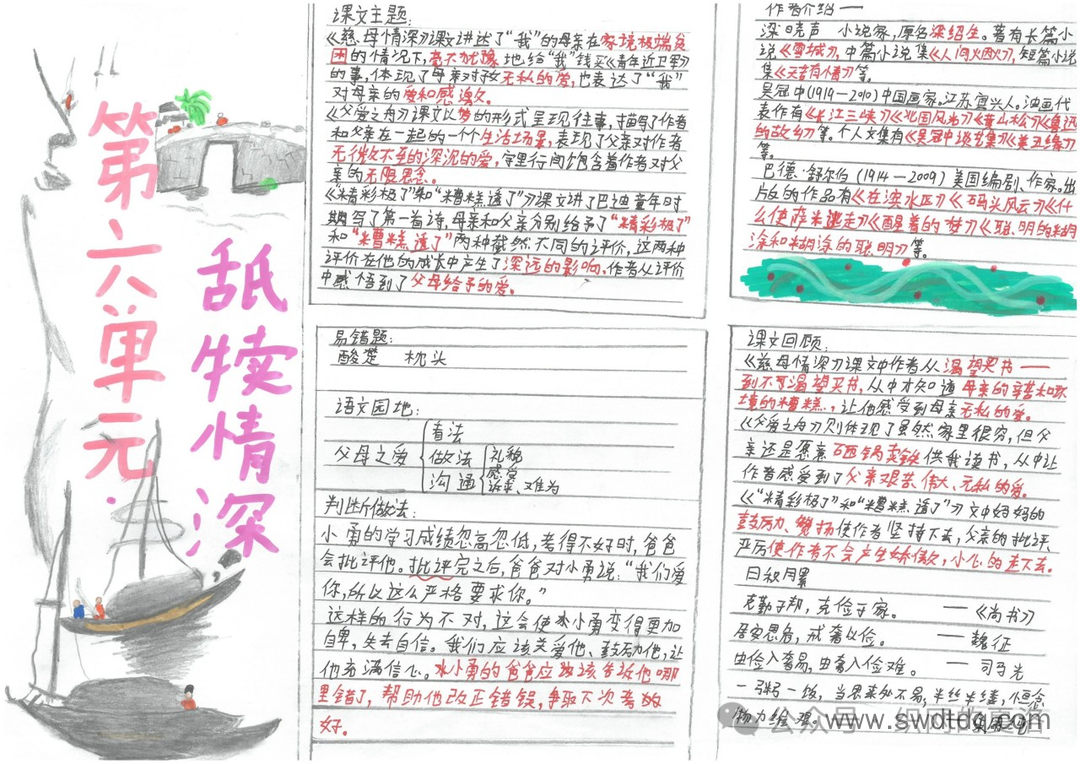 第六单元
舐犊情深
课文主题:
《慈母情深》课文讲达了“我”的母亲在家境极端贫
困的情况下,毫不犹豫地给“我”钱买《青年近卫军》
的事,体现了母亲对子女无私的爱,也表达了“我”
对母亲的爱和感激。
《父爱之舟》课文以梦的形式呈现往事,描写了作者
和父亲在一起的一个个生活场景,表现了父亲对作者
无微不至的深沉的爱,字里行间饱含着作者对父
亲的无限思念。
《“精彩极了”和“糟糕透了”》课文讲了巴迪童年时
期写了第一首诗,母亲和父亲分别给予了“精彩极了”
和“糟糕透了”两种截然不同的评价,这两种
评价在他的成长中产生了深远的影响,作者从评价
中感悟到了父母给予的爱。
易错题:
酸楚 枕头
语文园地:
父母之爱
看法
做法
沟通
礼貌
感受
诉求、难为
判断做法:
小勇的学习成绩忽高忽低,考得不好时,爸爸
会批评他。批评完之后,爸爸对小勇说:“我们爱
你,所以这么严格要求你。”
这样的行为不对,这会使小勇变得更加
自卑,失去自信。我们应该关爱他、鼓励他,让
他充满信心。小勇的爸爸应该告诉他哪
里错了,帮助他改正错误,争取下次考的
好。
作者介绍——
梁晓声 小说家,原名梁绍生。著有长篇小
说《雪城》,中篇小说集《人间烟火》,短篇小说
集《天若有情》等。
吴冠中(1919—2010)中国画家。江苏宜兴人。油画代
表作有《长江三峡》《北国风光》《黄山松》《鲁迅
的故乡》等。个人文集有《吴冠中谈艺集》《美丑缘》
等。
巴德·舒尔伯(1914—2009)美国编剧、作家。出
版的作品有《在滨水区》《码头风云》《什
么使萨米逃走》《醒着的梦》《聪明的糊
涂和糊涂的聪明》等。
课文回顾:
《慈母情深》课文中作者从渴望买书——
到不可渴望买书,从中才知道母亲的辛苦和环
境的糟糕,让他感受到母亲无私的爱。
《父爱之舟》则体现了虽然家里很穷,但父
亲还是愿意砸锅卖铁供我读书,从中让
作者感受到了父亲艰苦、伟大、无私的爱。
《“精彩极了”和“糟糕透了”》文中妈妈的
鼓励、赞扬使作者坚持下去,父亲的批评、
严厉使作者不会产生骄傲,小心的走下去。
日积月累
克勤于邦,克俭于家。 ——《尚书》
居安思危,戒奢以俭。 ——魏征
由俭入奢易,由奢入俭难。 ——司马光
一粥一饭,当思来处不易,半丝半缕,恒念
物力维艰。
公众号
www.swdtdq.com